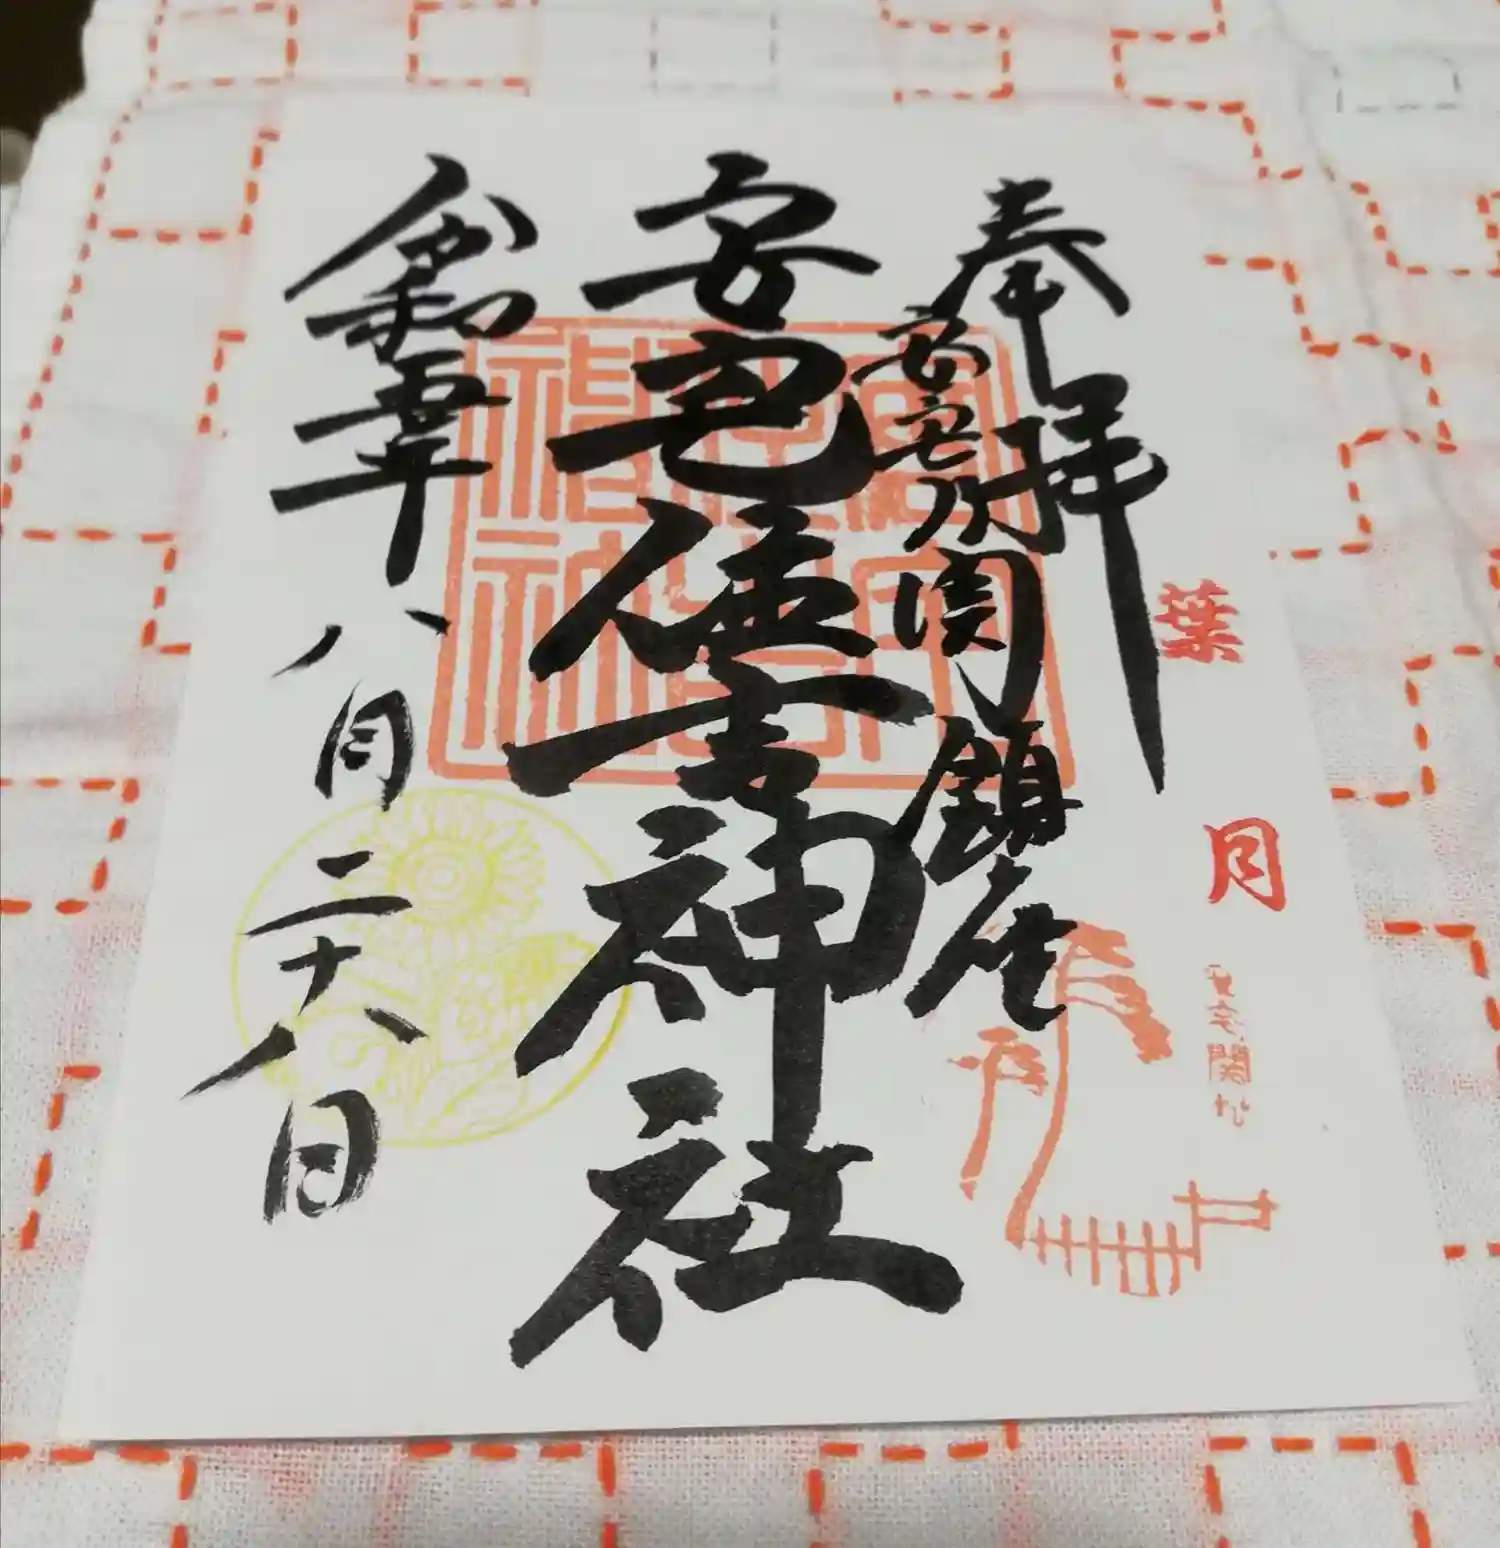 奉拝
安宅乃関鎮座
安宅住吉神社
令和五年八月二十八日
葉月
安宅関址